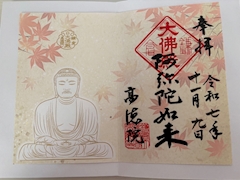 奉拝
令和七年
十一月九日
大佛
阿弥陀如来
高徳院